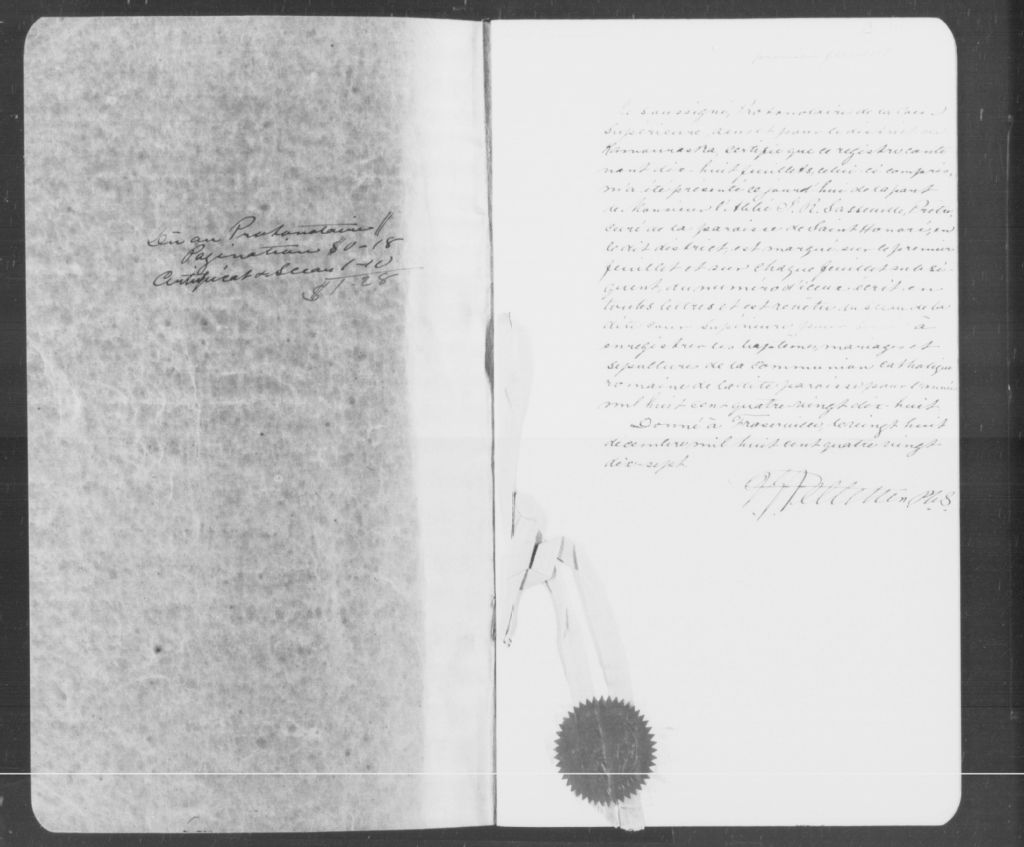 Dû au Protonotaire
Pagination $0-18
Certificat & Sceau 1-10
$1-28
premier feuillet
Je soussigné, Protonotaire de la Cour
Supérieure, dans et pour le district de
Kamouraska, certifie que ce registre conte
nant dix-huit feuillets, celui-ci compris,
m'a été présenté ce jourd'hui de la part
de Monsieur l'Abbé J. R. Lasseville, Prêtre,
Curé de la paroisse de Saint Honoré en
le dit district, est marqué sur le premier
feuillet et sur chaque feuillet subsé-
quent, du numéro d'iceux écrit en
toutes lettres et est revêtu du sceau de la
dite Cour Supérieure pour servir à
enregistrer les baptêmes, mariages et
sépultures de la Communion Catholique
romaine de la dite paroisse pour l'année
mil huit cent quatre-vingt dix-huit
Donné à Fraserville, le vingt huit
décembre mil huit cent quatre vingt
dix-sept.
Pelletier P.C.S.